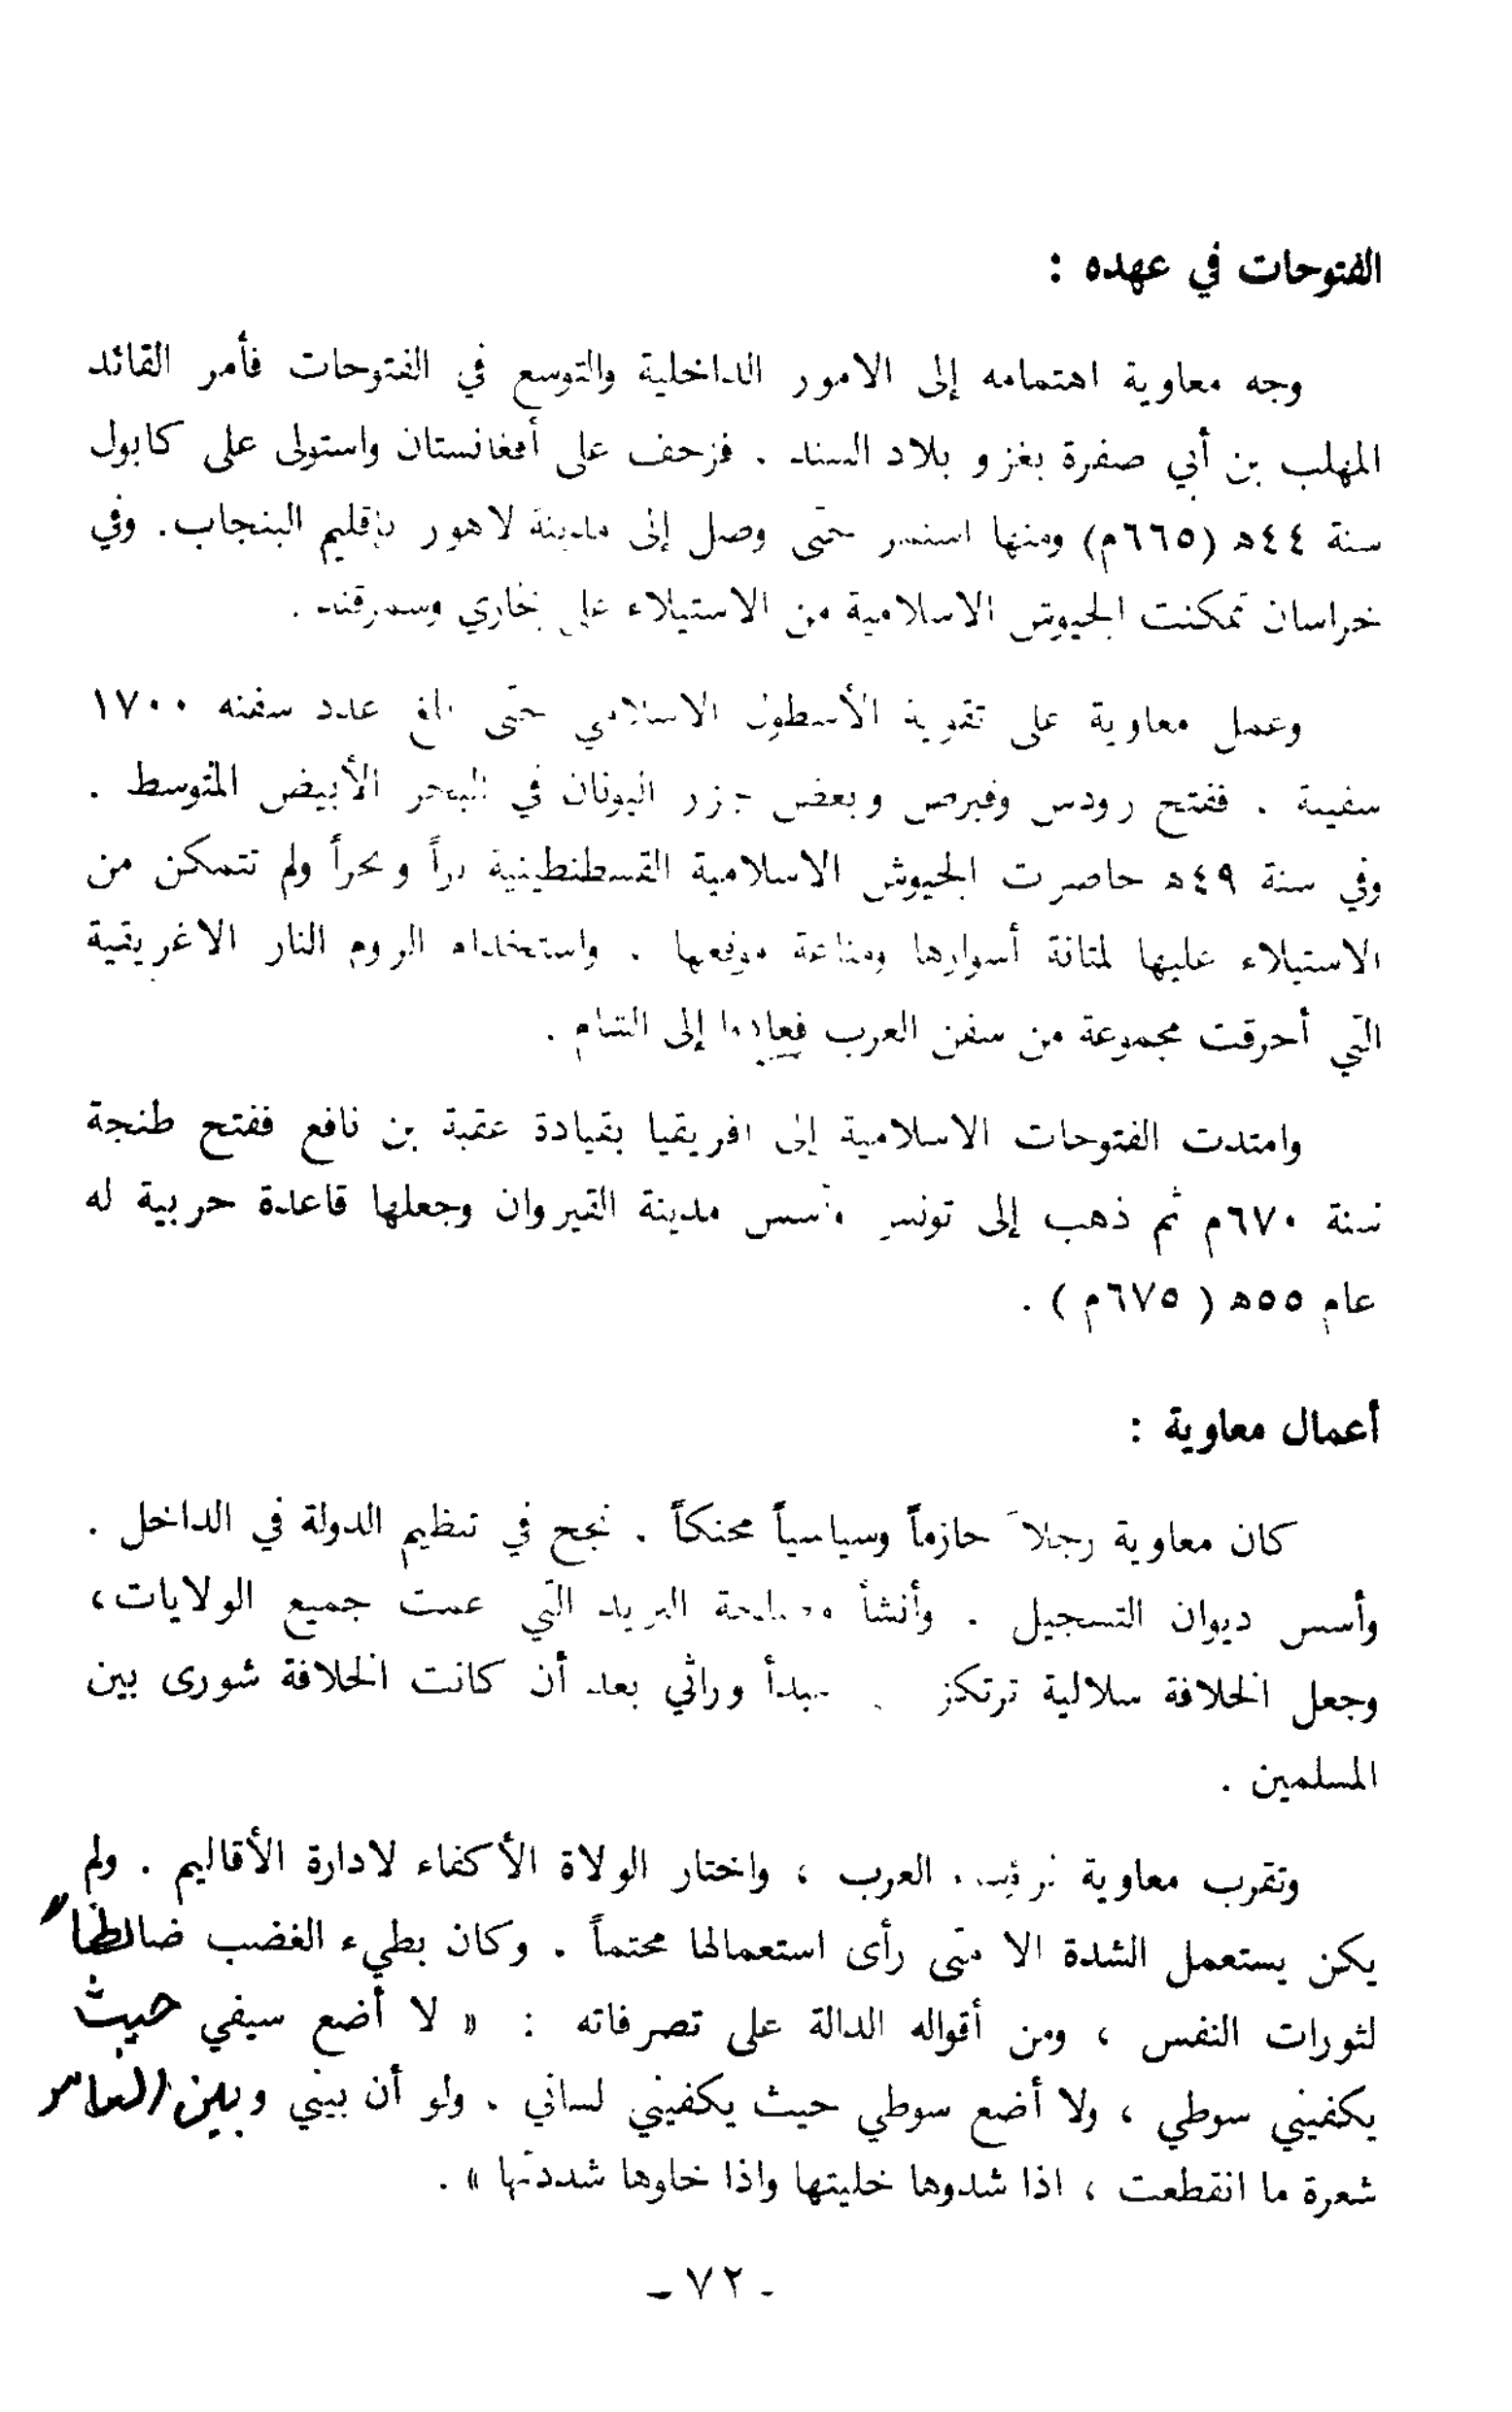 الفتوحات في عهده :
وجه معاوية اهتمامه إلى الامور الداخلية والتوسع في الفتوحات فأمر القائد
المهلب بن أبي صفرة بغزو بلاد السند . فزحف على أفغانستان واستولى على كابول
سنة ٤٤ه (٦٦٥م) ومنها استمر حتى وصل إلى مدينة لاهور بإقليم البنجاب. وفي
خراسان تمكنت الجيوش الاسلامية من الاستيلاء على بخاري وسمرقند .
وعمل معاوية على تقوية الأسطول الاسلامي حتى بلغ عدد سفنه ١٧٠٠
سفينة . ففتح رودس وقبرص وبعض جزر اليونان في البحر الأبيض المتوسط .
وفي سنة ٤٩ه حاصرت الجيوش الاسلامية القسطنطينية براً وبحراً ولم تتمكن من
الاستيلاء عليها لمتانة أسوارها ومناعة موقعها . واستخدام الروم النار الاغريقية
التي أحرقت مجموعة من سفن العرب فعادوا إلى الشام .
وامتدت الفتوحات الاسلامية إلى افريقيا بقيادة عقبة بن نافع ففتح طنجة
سنة ٦٧٠م ثم ذهب إلى تونس وأسس مدينة القيروان وجعلها قاعدة حربية له
عام ٥٥ه ( ٦٧٥م ) .
أعمال معاوية :
كان معاوية رجلاً حازماً وسياسياً محنكاً . نجح في تنظيم الدولة في الداخل .
وأسس ديوان التسجيل . وأنشأ مصلحة البريد التي عمت جميع الولايات،
وجعل الخلافة سلالية ترتكز مبدأ وراثي بعد أن كانت الخلافة شورى بين
المسلمين .
وتقرب معاوية العرب ، واختار الولاة الأكفاء لادارة الأقاليم . ولم
يكن يستعمل الشدة الا متى رأى استعمالها محتماً . وكان بطيء الغضب ضابطاً
لثورات النفس ، ومن أقواله الدالة على تصرفاته : « لا أضع سيفي حيث
يكفيني سوطي ، ولا أضع سوطي حيث يكفيني لساني . ولو أن بيني وبين الناس
شعرة ما انقطعت ، اذا شدوها خليتها واذا خلوها شددتها » .
- ٧٢ -